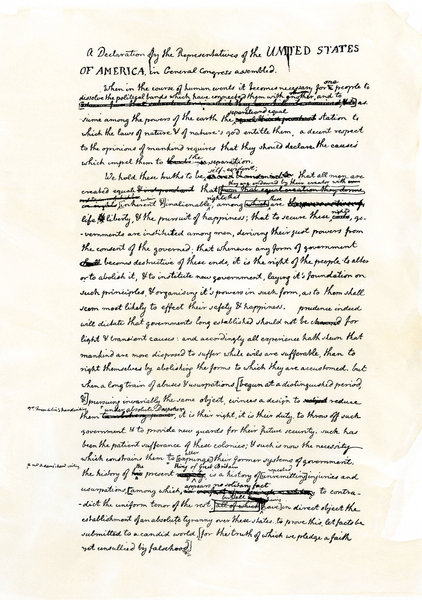 A Declaration by the Representatives of the UNITED STATES
OF AMERICA, in General Congress assembled.
When in the course of human events it becomes necessary for one people to
dissolve the political bands which have connected them with another, and to
-sume among the powers of the earth the separate and equal station to
which the laws of nature & of nature's god entitle them, a decent respect
to the opinions of mankind requires that they should declare the causes
which impel them to the separation.
self-evident;
We hold these truths to be that all men are
they are endowed by their creator with
created equal that
rights; that these
inherent & inalienable among which are
life liberty, & the pursuit of happiness; that to secure these rights, go-
-vernments are instituted among men, deriving their just powers from
the consent of the governed. that whenever any form of government
becomes destructive of these ends, it is the right of the people to alter
or to abolish it, & to institute new government, laying it's foundation on
such principles & organising it's powers in such form, as to them shall
seem most likely to effect their safety & happiness. prudence indeed
will dictate that governments long established should not be changed for
light & transient causes: and accordingly all experience hath shewn that
mankind are more disposed to suffer while evils are sufferable, than to
right themselves by abolishing the forms to which they are accustomed. but
when a long train of abuses & usurpations [begun at a distinguished period,
& pursuing invariably the same object, evinces a design to reduce
under absolute Despotism
them it is their right, it is their duty to throw off such
government & to provide new guards for their future security. such has
been the patient sufferance of these colonies; & such is now the necessity
which constrains them to [expunge] their former systems of government.
alter
the history of the present king of Great Britain is a history of [unremitting] injuries and
repeated
usurpations, [among which, appears no solitary fact to contra-
-dict the uniform tenor of the rest, [all of which] [have] in direct object the
establishment of an absolute tyranny over these states. to prove this, let facts be
submitted to a candid world [for the truth of which we pledge a faith
yet unsullied by falsehood]